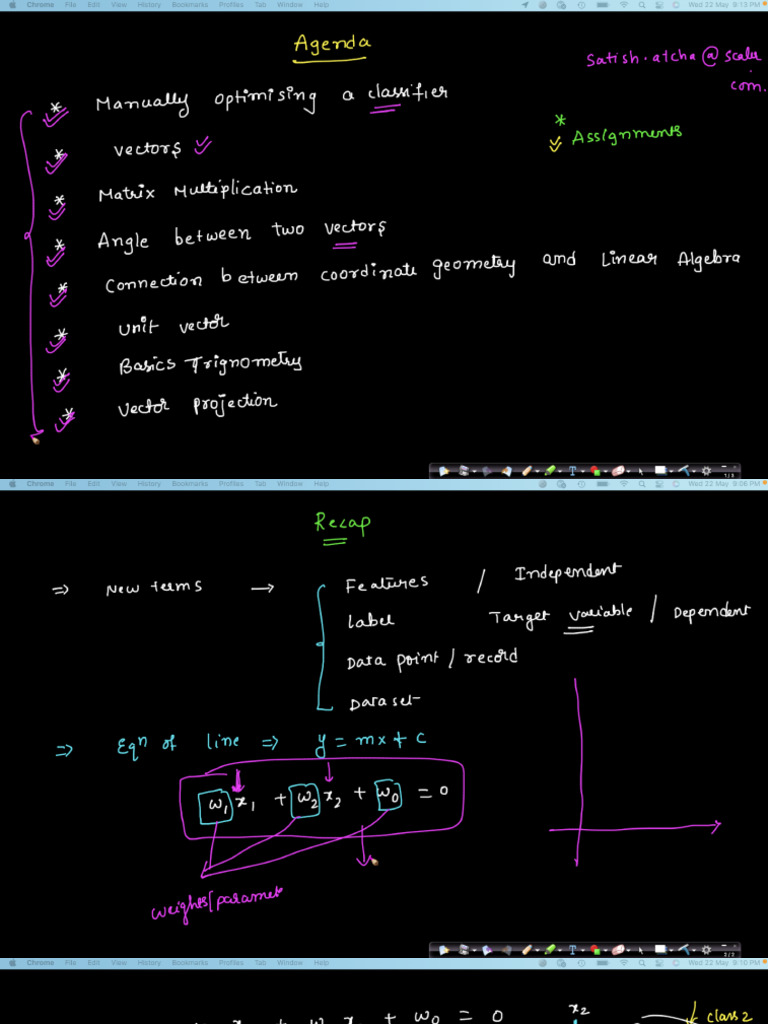 Chrome File Edit View History Bookmarks Profiles Tab Window Help Wed 22 May 9:13 PM
Agenda
Satish.atcha@scaler
.
com.
* Manually optimising a classifier
* Assignments
* vectors
* Matrix Multiplication
* Angle between two vectors
* Connection between coordinate geometry and Linear Algebra
* unit vector
* Basics Trignometry
* Vector projection
Chrome File Edit View History Bookmarks Profiles Tab Window Help Wed 22 May 9:06 PM
Recap
⇒ New terms → Features / Independent
Label Target variable / Dependent
Data point / record
Dataset
⇒ Eqn of line ⇒ y = mx + c
w1 x1 + w2 x2 + w0 = 0
weights/paramet
2/2
Chrome File Edit View History Bookmarks Profiles Tab Window Help Wed 22 May 9:10 PM
+ w0 = 0
x2
class 2